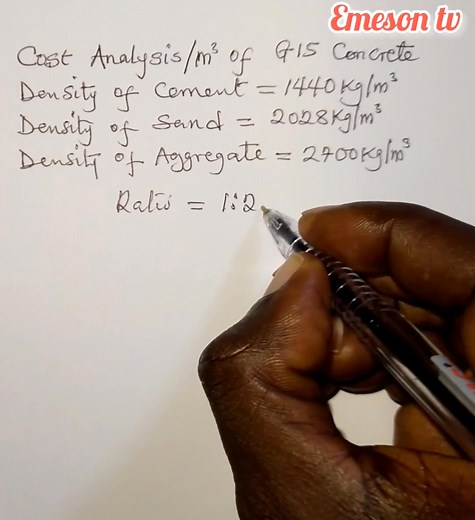 Emeson tv
Cost Analysis/m³ of G-15 Concrete
Density of Cement = 1440kg/m³
Density of Sand = 2028kg/m³
Density of Aggregate = 2700kg/m³
Ratio = 1:2